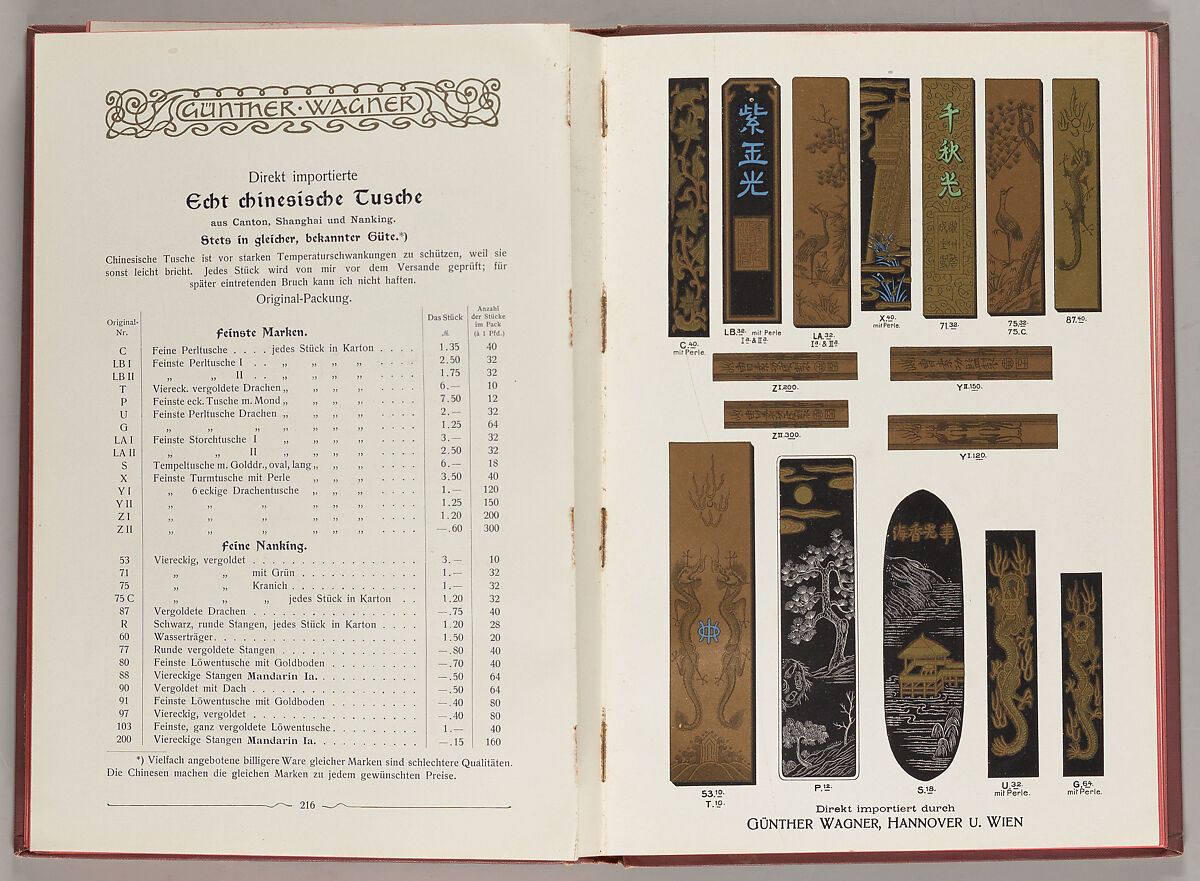 GÜNTHER·WAGNER
Direkt importierte
Echt chinesische Tusche
aus Canton, Shanghai und Nanking.
Stets in gleicher, bekannter Güte.*)
Chinesische Tusche ist vor starken Temperaturschwankungen zu schützen, weil sie
sonst leicht bricht. Jedes Stück wird von mir vor dem Versande geprüft; für
später eintretenden Bruch kann ich nicht haften.
Original-Packung.
Original-Nr. Feinste Marken. Das Stück ℳ. Anzahl der Stücke im Pack (à 1 Pfd.)
C Feine Perltusche . . . . jedes Stück in Karton . . . . 1.35 40
LB I Feinste Perltusche I . . „ „ „ „ . . . . 2.50 32
LB II „ „ II . . „ „ „ „ . . . . 1.75 32
T Viereck. vergoldete Drachen „ „ „ „ . . . . 6.— 10
P Feinste eck. Tusche m. Mond „ „ „ „ . . . . 7.50 12
U Feinste Perltusche Drachen „ „ „ „ . . . . 2.— 32
G „ „ „ „ „ „ „ . . . . 1.25 64
LA I Feinste Storchtusche I „ „ „ „ . . . . 3.— 32
LA II „ „ II „ „ „ „ . . . . 2.50 32
S Tempeltusche m. Golddr., oval, lang „ „ „ . . . . 6.— 18
X Feinste Turmtusche mit Perle „ „ „ . . . . 3.50 40
Y I „ 6 eckige Drachentusche „ „ „ . . . . 1.— 120
Y II „ „ „ „ „ „ . . . . 1.25 150
Z I „ „ „ „ „ „ . . . . 1.20 200
Z II „ „ „ „ „ „ . . . . —.60 300
Feine Nanking.
53 Viereckig, vergoldet . . . . . . . . . . . . . . 3.— 10
71 „ „ mit Grün . . . . . . . . . . 1.— 32
75 „ „ Kranich . . . . . . . . . . . 1.— 32
75 C „ „ „ jedes Stück in Karton . . 1.20 32
87 Vergoldete Drachen . . . . . . . . . . . . . . —.75 40
R Schwarz, runde Stangen, jedes Stück in Karton . . . . 1.20 28
60 Wasserträger. . . . . . . . . . . . . . . . . 1.50 20
77 Runde vergoldete Stangen . . . . . . . . . . . —.80 40
80 Feinste Löwentusche mit Goldboden . . . . . . . . —.70 40
88 Viereckige Stangen Mandarin Ia. . . . . . . . . . —.50 64
90 Vergoldet mit Dach . . . . . . . . . . . . . . —.50 64
91 Feinste Löwentusche mit Goldboden . . . . . . . . —.40 80
97 Viereckig, vergoldet . . . . . . . . . . . . . . —.40 80
103 Feinste, ganz vergoldete Löwentusche . . . . . . . . 1.— 40
200 Viereckige Stangen Mandarin Ia. . . . . . . . . . —.15 160
*) Vielfach angebotene billigere Ware gleicher Marken sind schlechtere Qualitäten.
Die Chinesen machen die gleichen Marken zu jedem gewünschten Preise.
216
紫玉光
千秋光
C.40.
mit Perle.
LB.32. mit Perle
Iª & IIª
LA.32.
Iª & IIª
X.40.
mit Perle.
71.32.
75.32.
75.C.
87.40.
Z I.200.
Y II.150.
Z II.300.
Y I.120.
華光香海
53.10.
T.10.
P.12.
S.18.
U.32.
mit Perle.
G.64.
mit Perle.
Direkt importiert durch
GÜNTHER WAGNER, HANNOVER U. WIEN